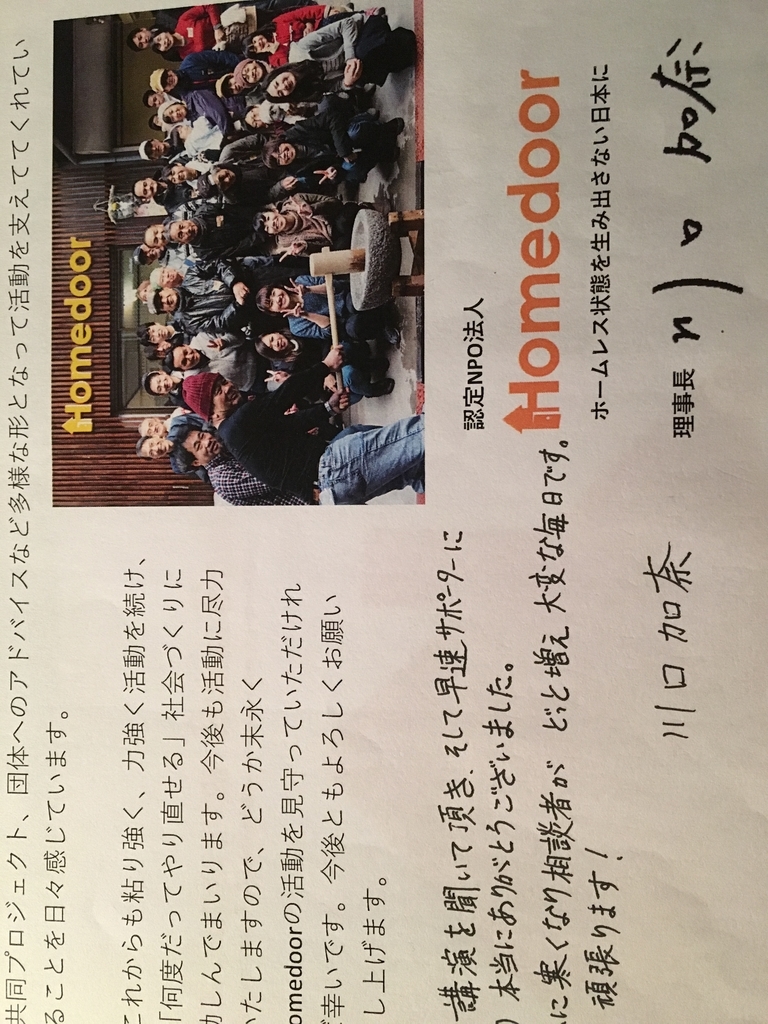 共同プロジェクト、団体へのアドバイスなど多様な形となって活動を支えててくれてい
ることを日々感じています。
これからも粘り強く、力強く活動を続け、
「何度だってやり直せる」社会づくりに
しんでまいります。今後も活動に尽力
いたしますので、どうか末永く
omedoorの活動を見守っていただけれ
幸いです。今後ともよろしくお願い
し上げます。
Homedoor
認定NPO法人
Homedoor
ホームレス状態を生み出さない日本に
理事長 川口 加奈
講演を聞いて頂き、そして早速サポーターに
本当にありがとうございました。
に寒くなり相談者が どっと増え 大変な毎日です。
頑張ります!
川口 加奈